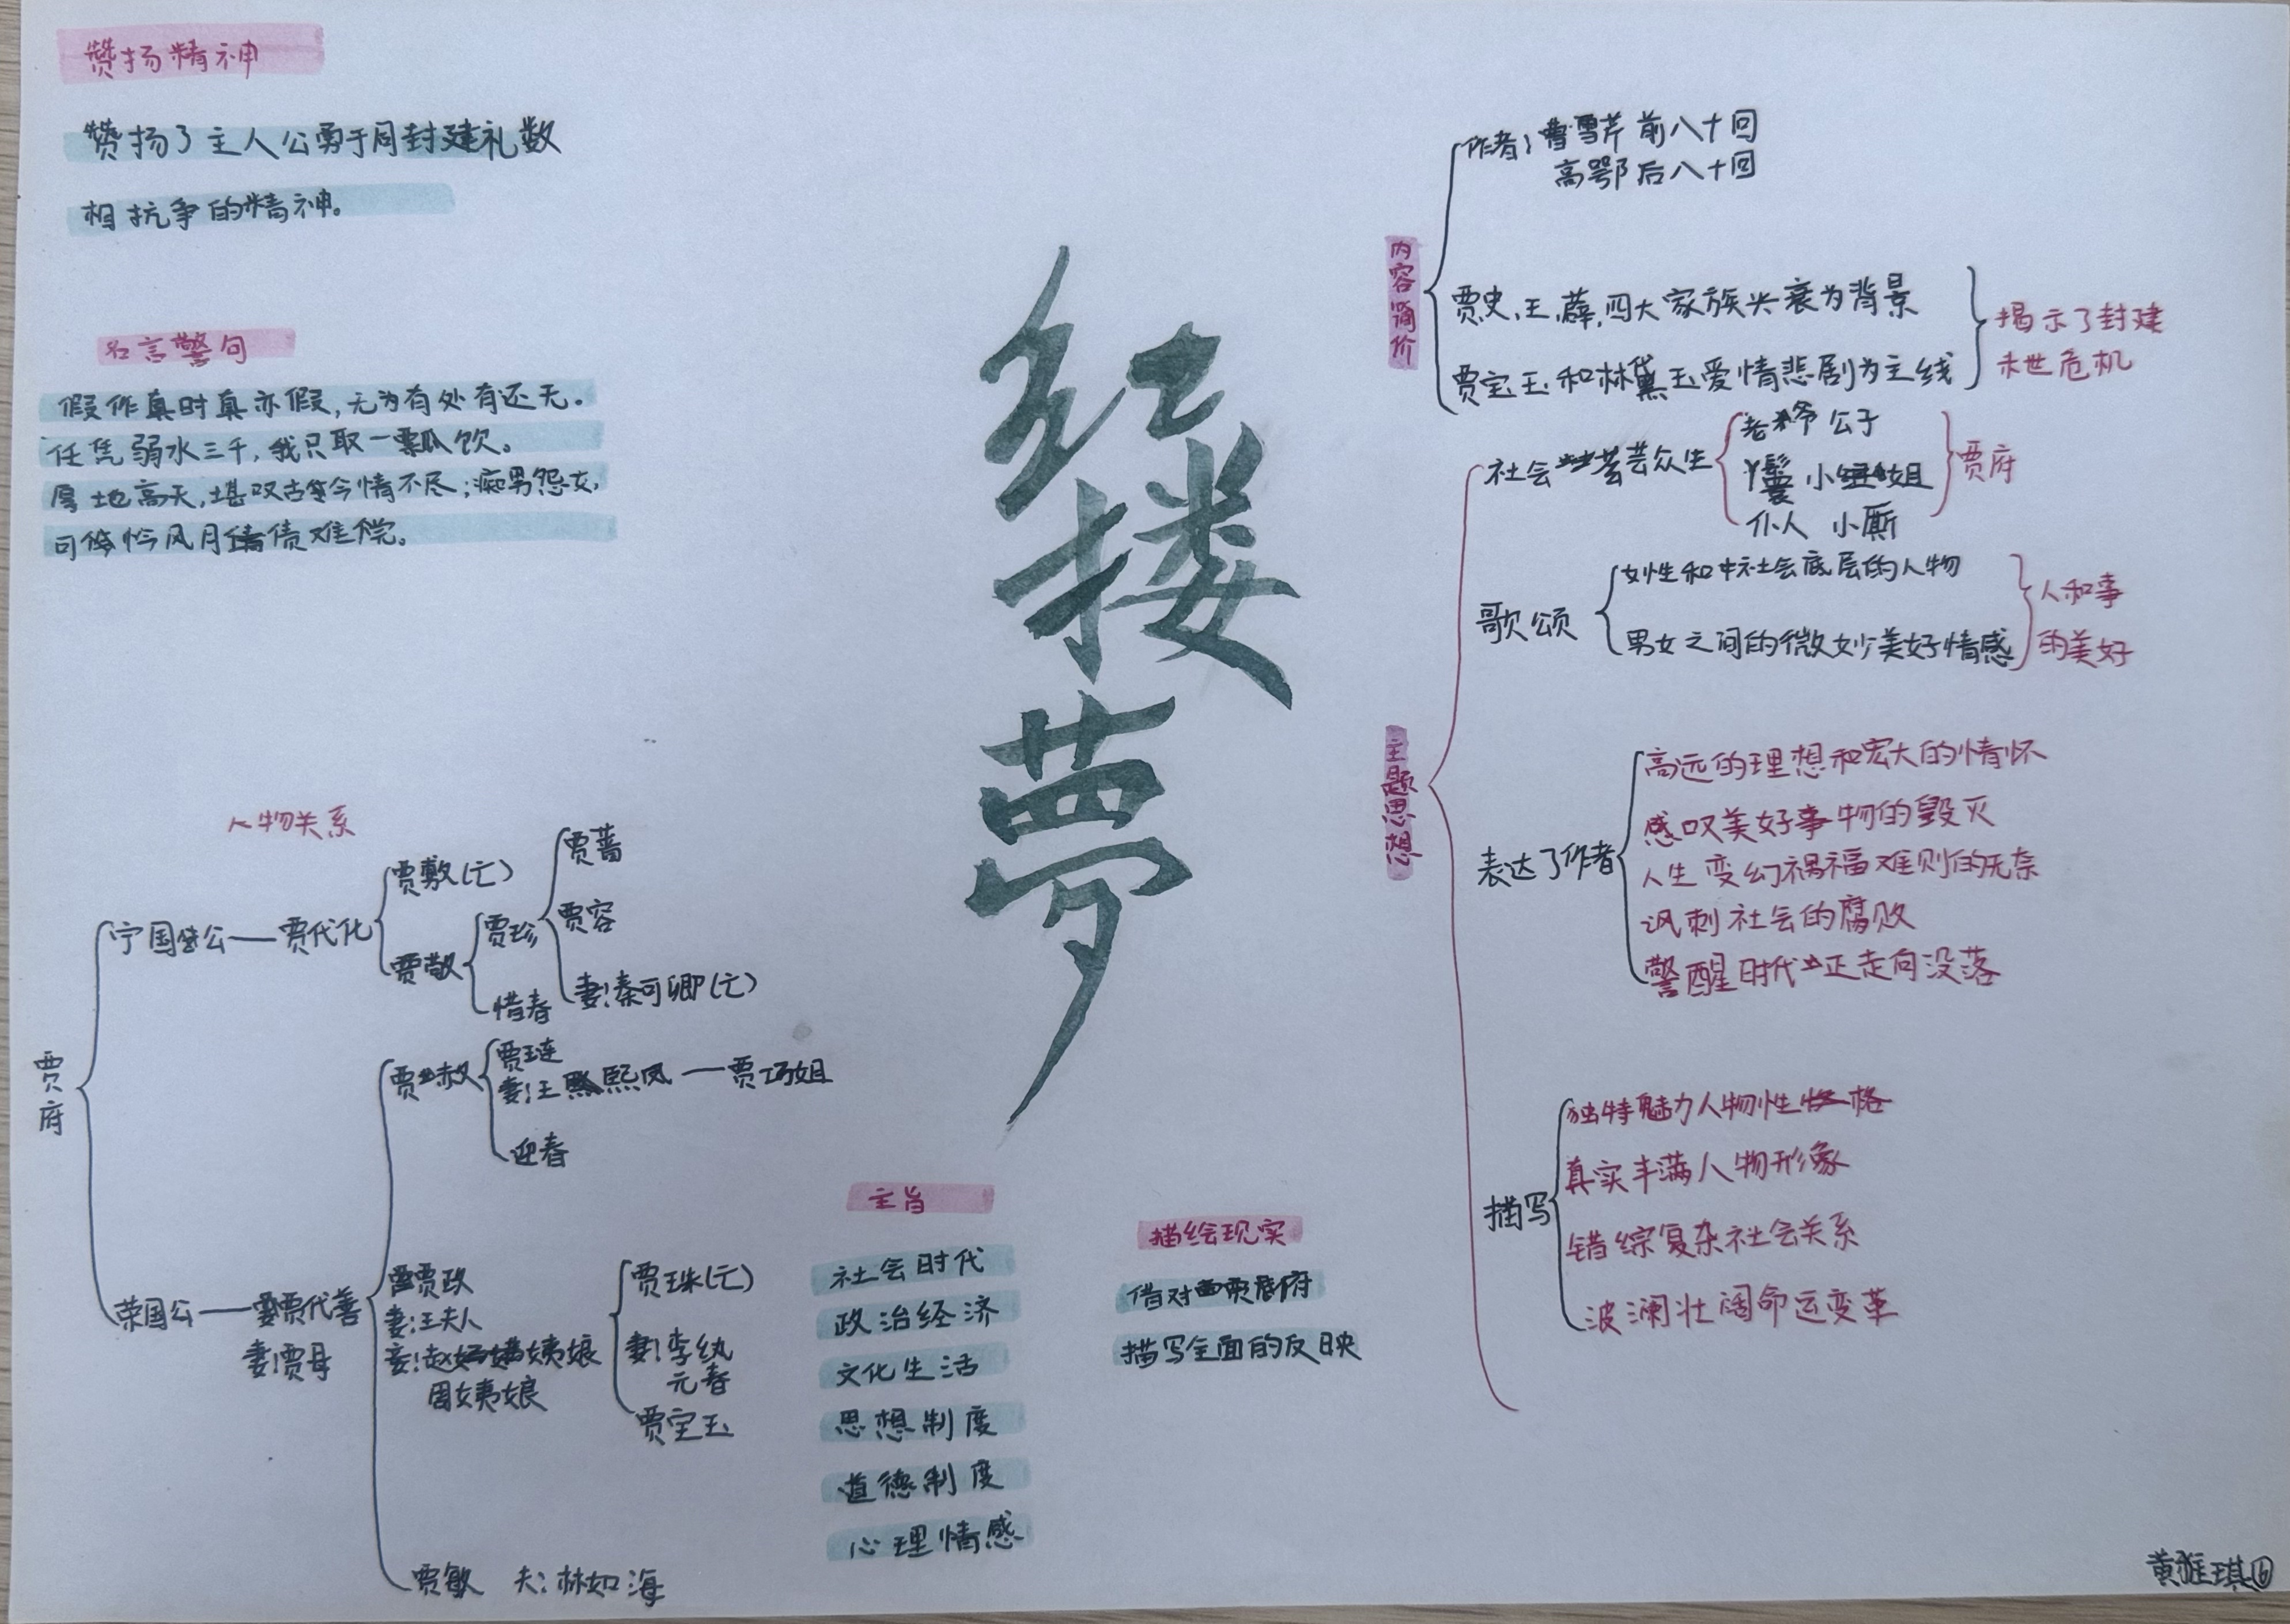 赞扬精神
赞扬了主人公勇于同封建礼数
相抗争的精神。
名言警句
假作真时真亦假,无为有处有还无。
任凭弱水三千,我只取一瓢饮。
厚地高天,堪叹古今情不尽;痴男怨女,
可怜风月债难偿。
红
楼
梦
人物关系
贾府
宁国公——贾代化
贾敷(亡)
贾敬
贾珍
惜春
贾蔷
贾容
妻:秦可卿(亡)
荣国公——贾代善
妻:贾母
贾赦
贾琏
妻:王熙凤——贾巧姐
迎春
贾政
妻:王夫人
妾:赵姨娘
周姨娘
贾珠(亡)
妻:李纨
元春
贾宝玉
贾敏 夫:林如海
主旨
社会时代
政治经济
文化生活
思想制度
道德制度
心理情感
描绘现实
借对贾府
描写全面的反映
内容简价
作者:曹雪芹 前八十回
高鄂 后八十回
贾史,王,薛,四大家族兴衰为背景
贾宝玉和林黛玉爱情悲剧为主线
揭示了封建
末世危机
主题思想
社会芸芸众生
老爷 公子
丫鬟 小姐
仆人 小厮
贾府
歌颂
女性和社会底层的人物
男女之间的微妙美好情感
人和事
的美好
表达了作者
高远的理想和宏大的情怀
感叹美好事物的毁灭
人生变幻祸福难则的无奈
讽刺社会的腐败
警醒时代正走向没落
描写
独特魅力人物性格
真实丰满人物形象
错综复杂社会关系
波澜壮阔命运变革
黄雅琪⑥